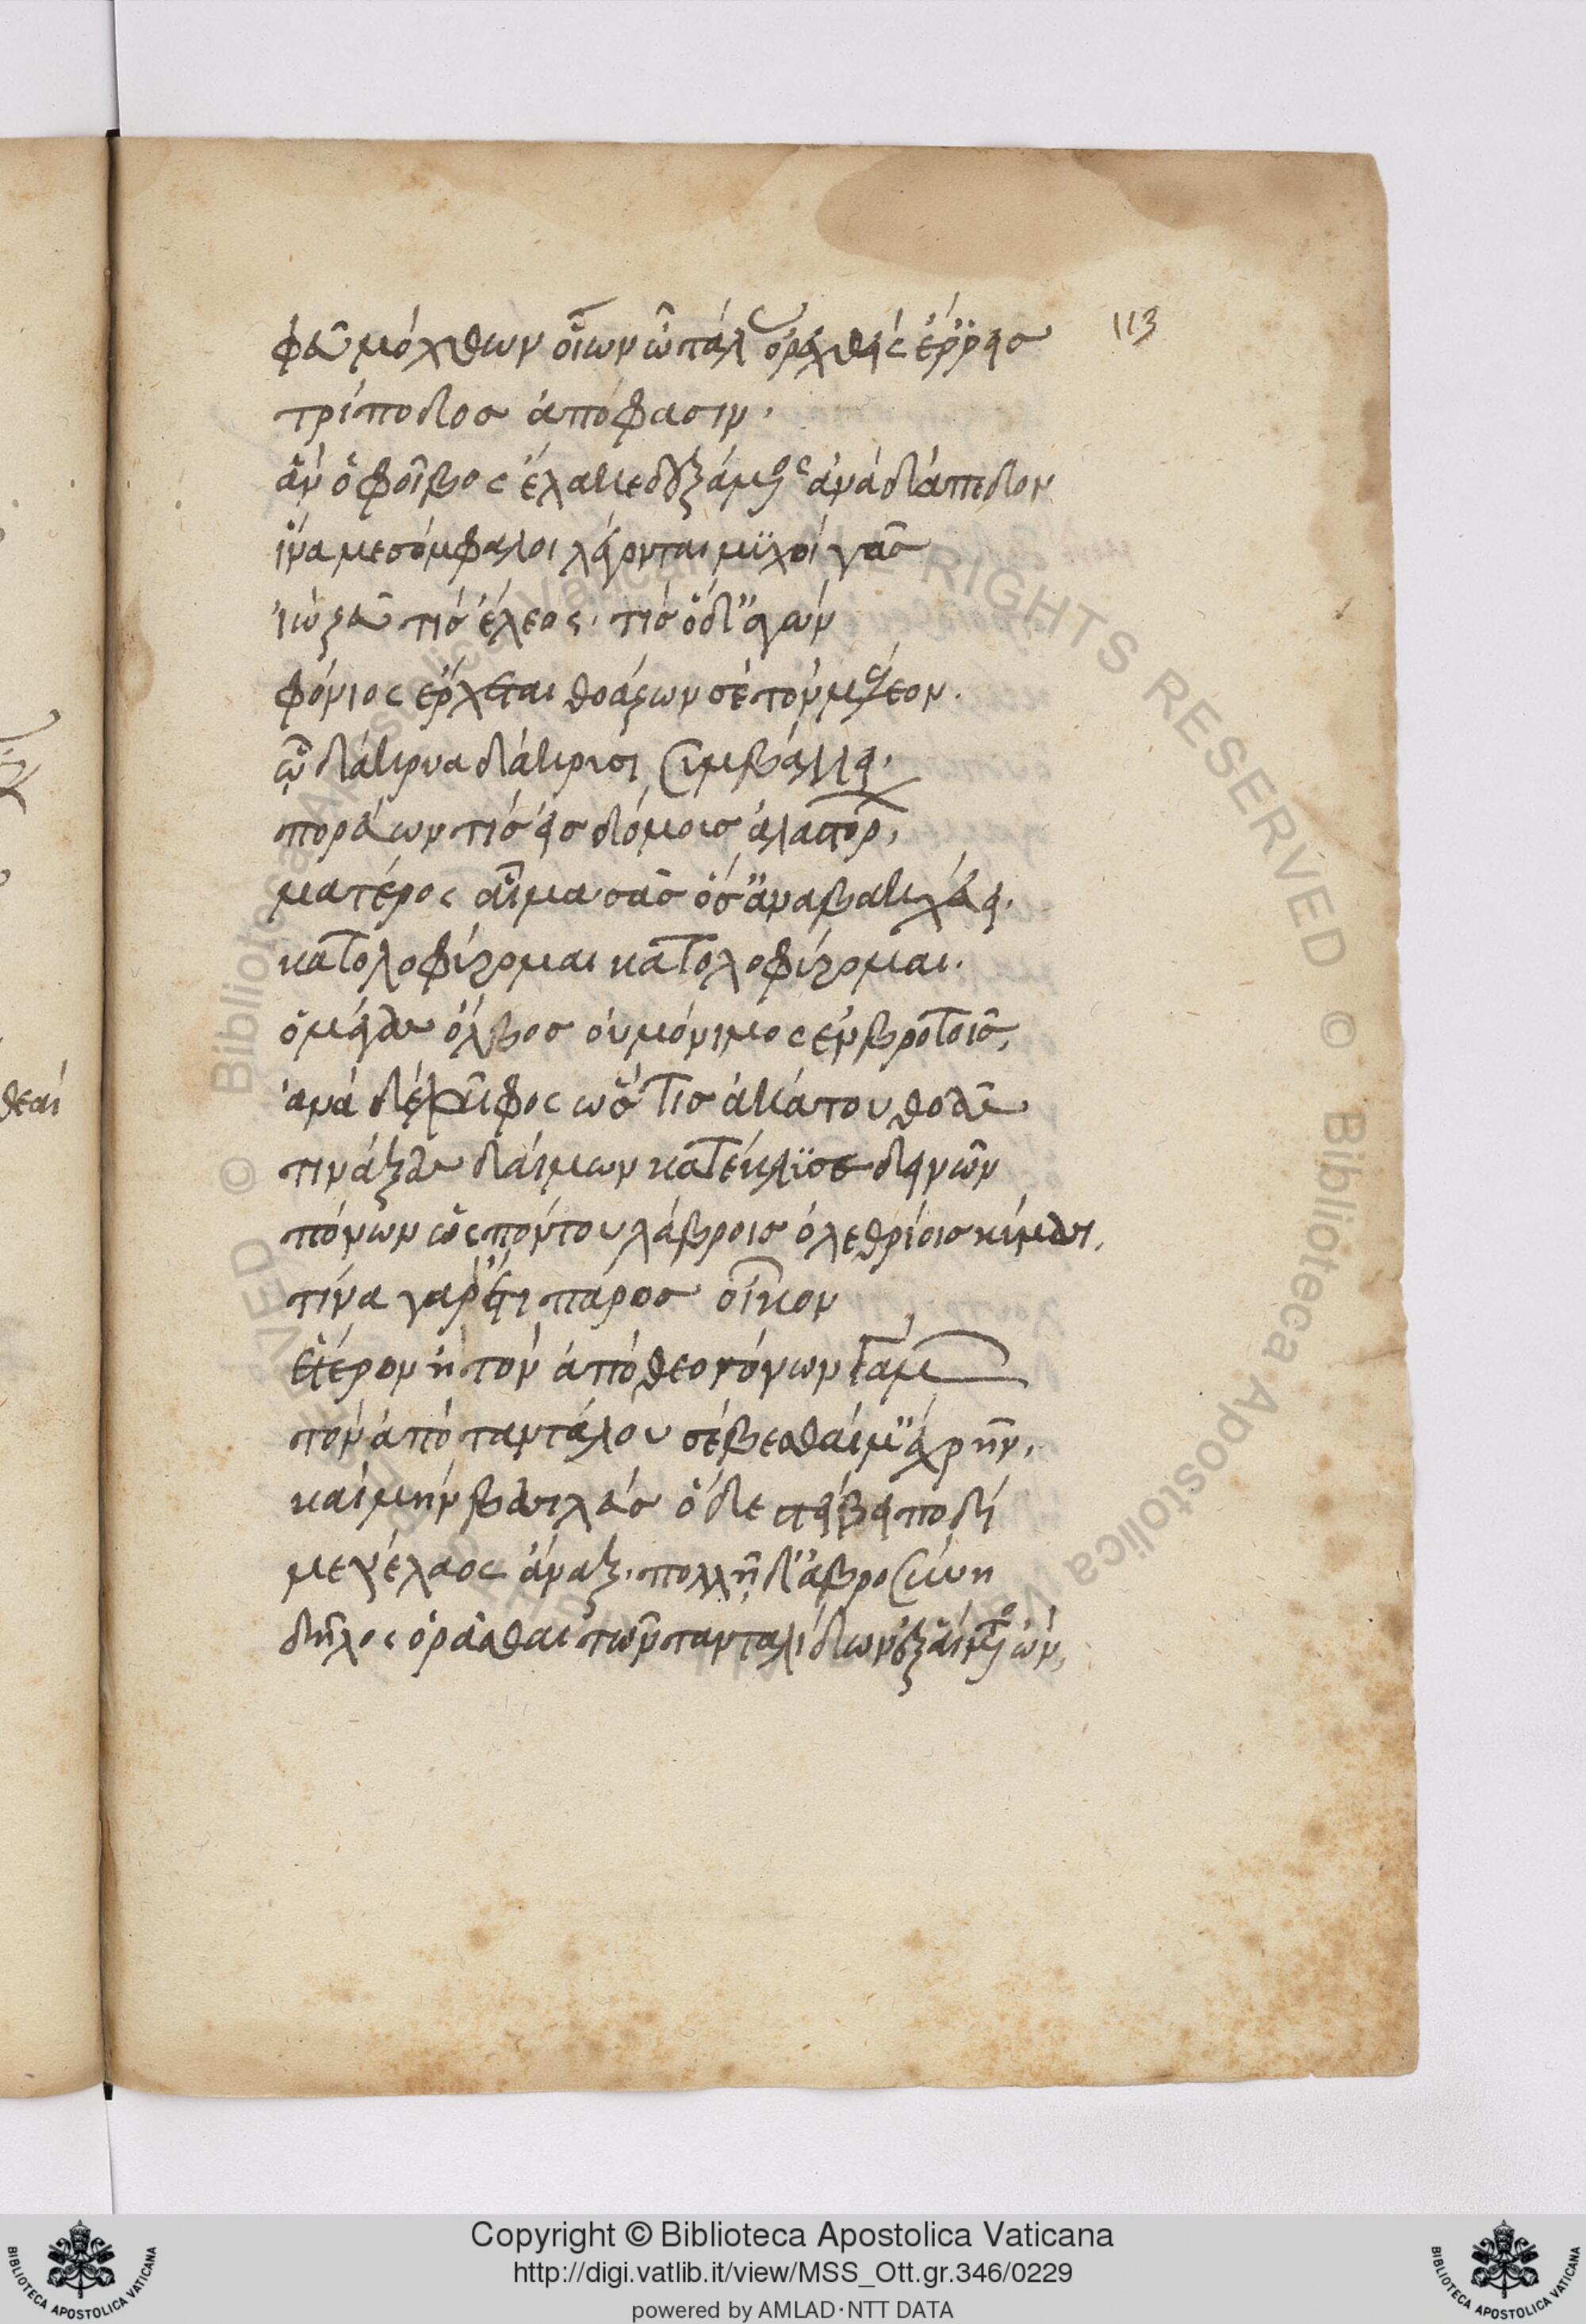 φεῦ μόχθων οἵων ὦ τάλας ὀρεχθεὶς ἔρρεις
τρίποδος ἀπόφασιν.
ἂν ὁ φοῖβος ἔλακε δεξάμενος ἀνὰ δάπεδον
ἵνα μεσόμφαλοι λέγονται μυχοὶ γᾶς
ἰὼ ζεῦ τίς ἔλεος. τίς ὅδ' ἀγὼν
φόνιος ἔρχεται θοάζων σὲ τὸν μέλεον.
ὧ δάκρυα δάκρυσι συμβάλλει.
πορεύων τίς εἰς δόμοις ἀλαστόρ,
ματέρος αἷμα σᾶς ὅς ἀναβακχεύει.
κατολοφύρομαι κατολοφύρομαι.
ὁ μέγας ὄλβος οὐ μόνιμος ἐν βροτοῖς,
ἀνὰ δὲ λαῖφος ὥς τις ἀκάτου θοᾶς
τινάξας δαίμων κατέκλυσε δεινῶν
πόνων ὡς πόντου λάβροις ὀλεθρίοις κύμασι.
τίνα γὰρ ἔτι πάρος οἶκον
ἕτερον ἢ τὸν ἀπὸ θεογόνων γάμων
τὸν ἀπὸ ταντάλου σέβεσθαί μ' ἐχρῆν.
καὶ μὴν βασιλεὺς ὅδε στείβει ποδὶ
μενέλαος ἄναξ. πολλῇ δ' ἁβροσύνη
δῆλος ὁρᾶσθαι τῶν τανταλιδῶν ἐξ αἵματος ὤν,
113
θεαὶ
Copyright © Biblioteca Apostolica Vaticana
http://digi.vatlib.it/view/MSS_Ott.gr.346/0229
powered by AMLAD·NTT DATA
BIBLIOTECA APOSTOLICA VATICANA
BIBLIOTECA APOSTOLICA VATICANA